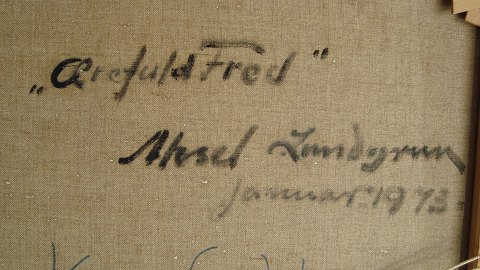 „Ærefuld Fred”
Aksel Landgren
Januar 1973